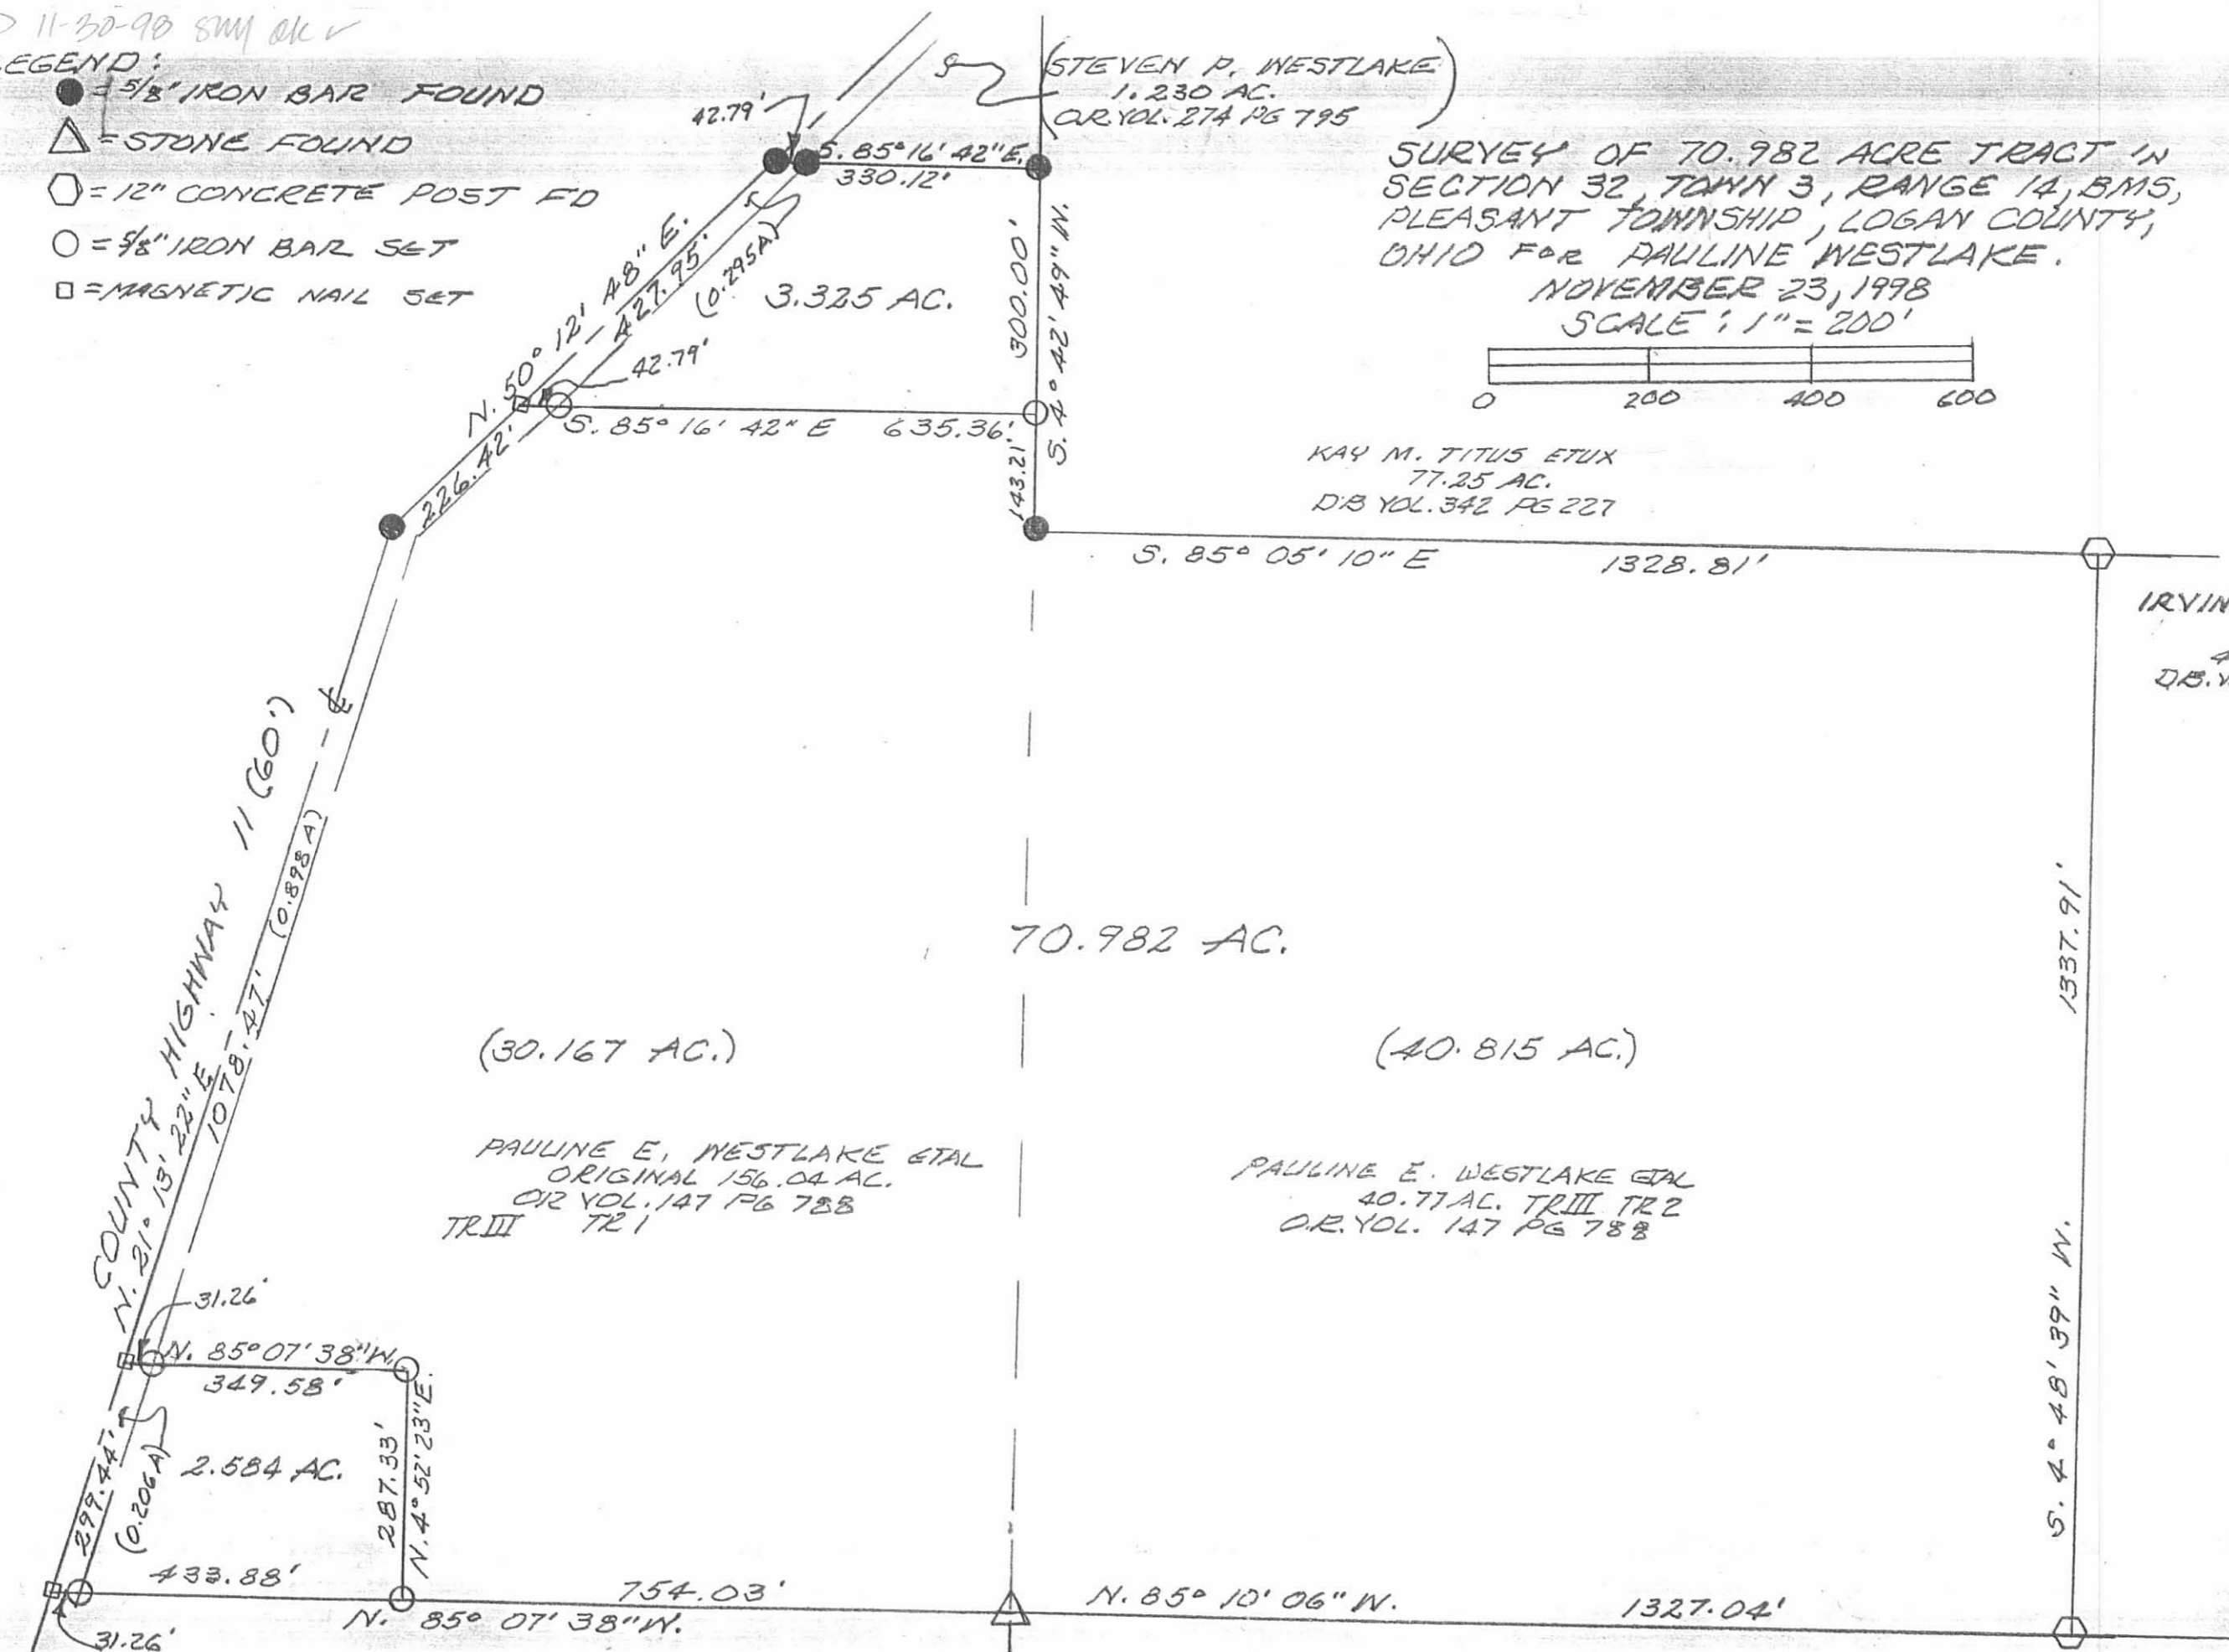 11-30-98 smy ok ✓
LEGEND:
● = 5/8" IRON BAR FOUND
△ = STONE FOUND
⬡ = 12" CONCRETE POST FD
○ = 5/8" IRON BAR SET
□ = MAGNETIC NAIL SET
(STEVEN P. WESTLAKE
1.230 AC.
O.R. VOL. 274 PG 795)
SURVEY OF 70.982 ACRE TRACT IN
SECTION 32, TOWN 3, RANGE 14, BMS,
PLEASANT TOWNSHIP, LOGAN COUNTY,
OHIO FOR PAULINE WESTLAKE.
NOVEMBER 23, 1998
SCALE: 1" = 200'
0 200 400 600
42.79'
S. 85° 16' 42" E.
330.12'
N. 50° 12' 48" E.
427.95'
(0.295A)
3.325 AC.
300.00'
S. 4° 42' 49" W.
42.79'
S. 85° 16' 42" E 635.36'
226.42'
143.21'
KAY M. TITUS ETUX
77.25 AC.
DB VOL. 342 PG 227
S. 85° 05' 10" E 1328.81'
IRVIN
4
DB. V
℄
COUNTY HIGHWAY 11 (60')
N. 21° 13' 22" E.
1078.47'
(0.898A)
70.982 AC.
1337.91'
S. 4° 48' 39" W.
(30.167 AC.)
(40.815 AC.)
PAULINE E. WESTLAKE ETAL
ORIGINAL 156.04 AC.
OR VOL. 147 PG 788
TR III TR 1
PAULINE E. WESTLAKE ETAL
40.77 AC. TR III TR 2
O.R. VOL. 147 PG 788
31.26'
N. 85° 07' 38" W.
349.58'
299.44'
(0.206A)
2.584 AC.
287.33'
N. 4° 52' 23" E.
433.88'
754.03'
N. 85° 07' 38" W.
N. 85° 10' 06" W.
1327.04'
31.26'